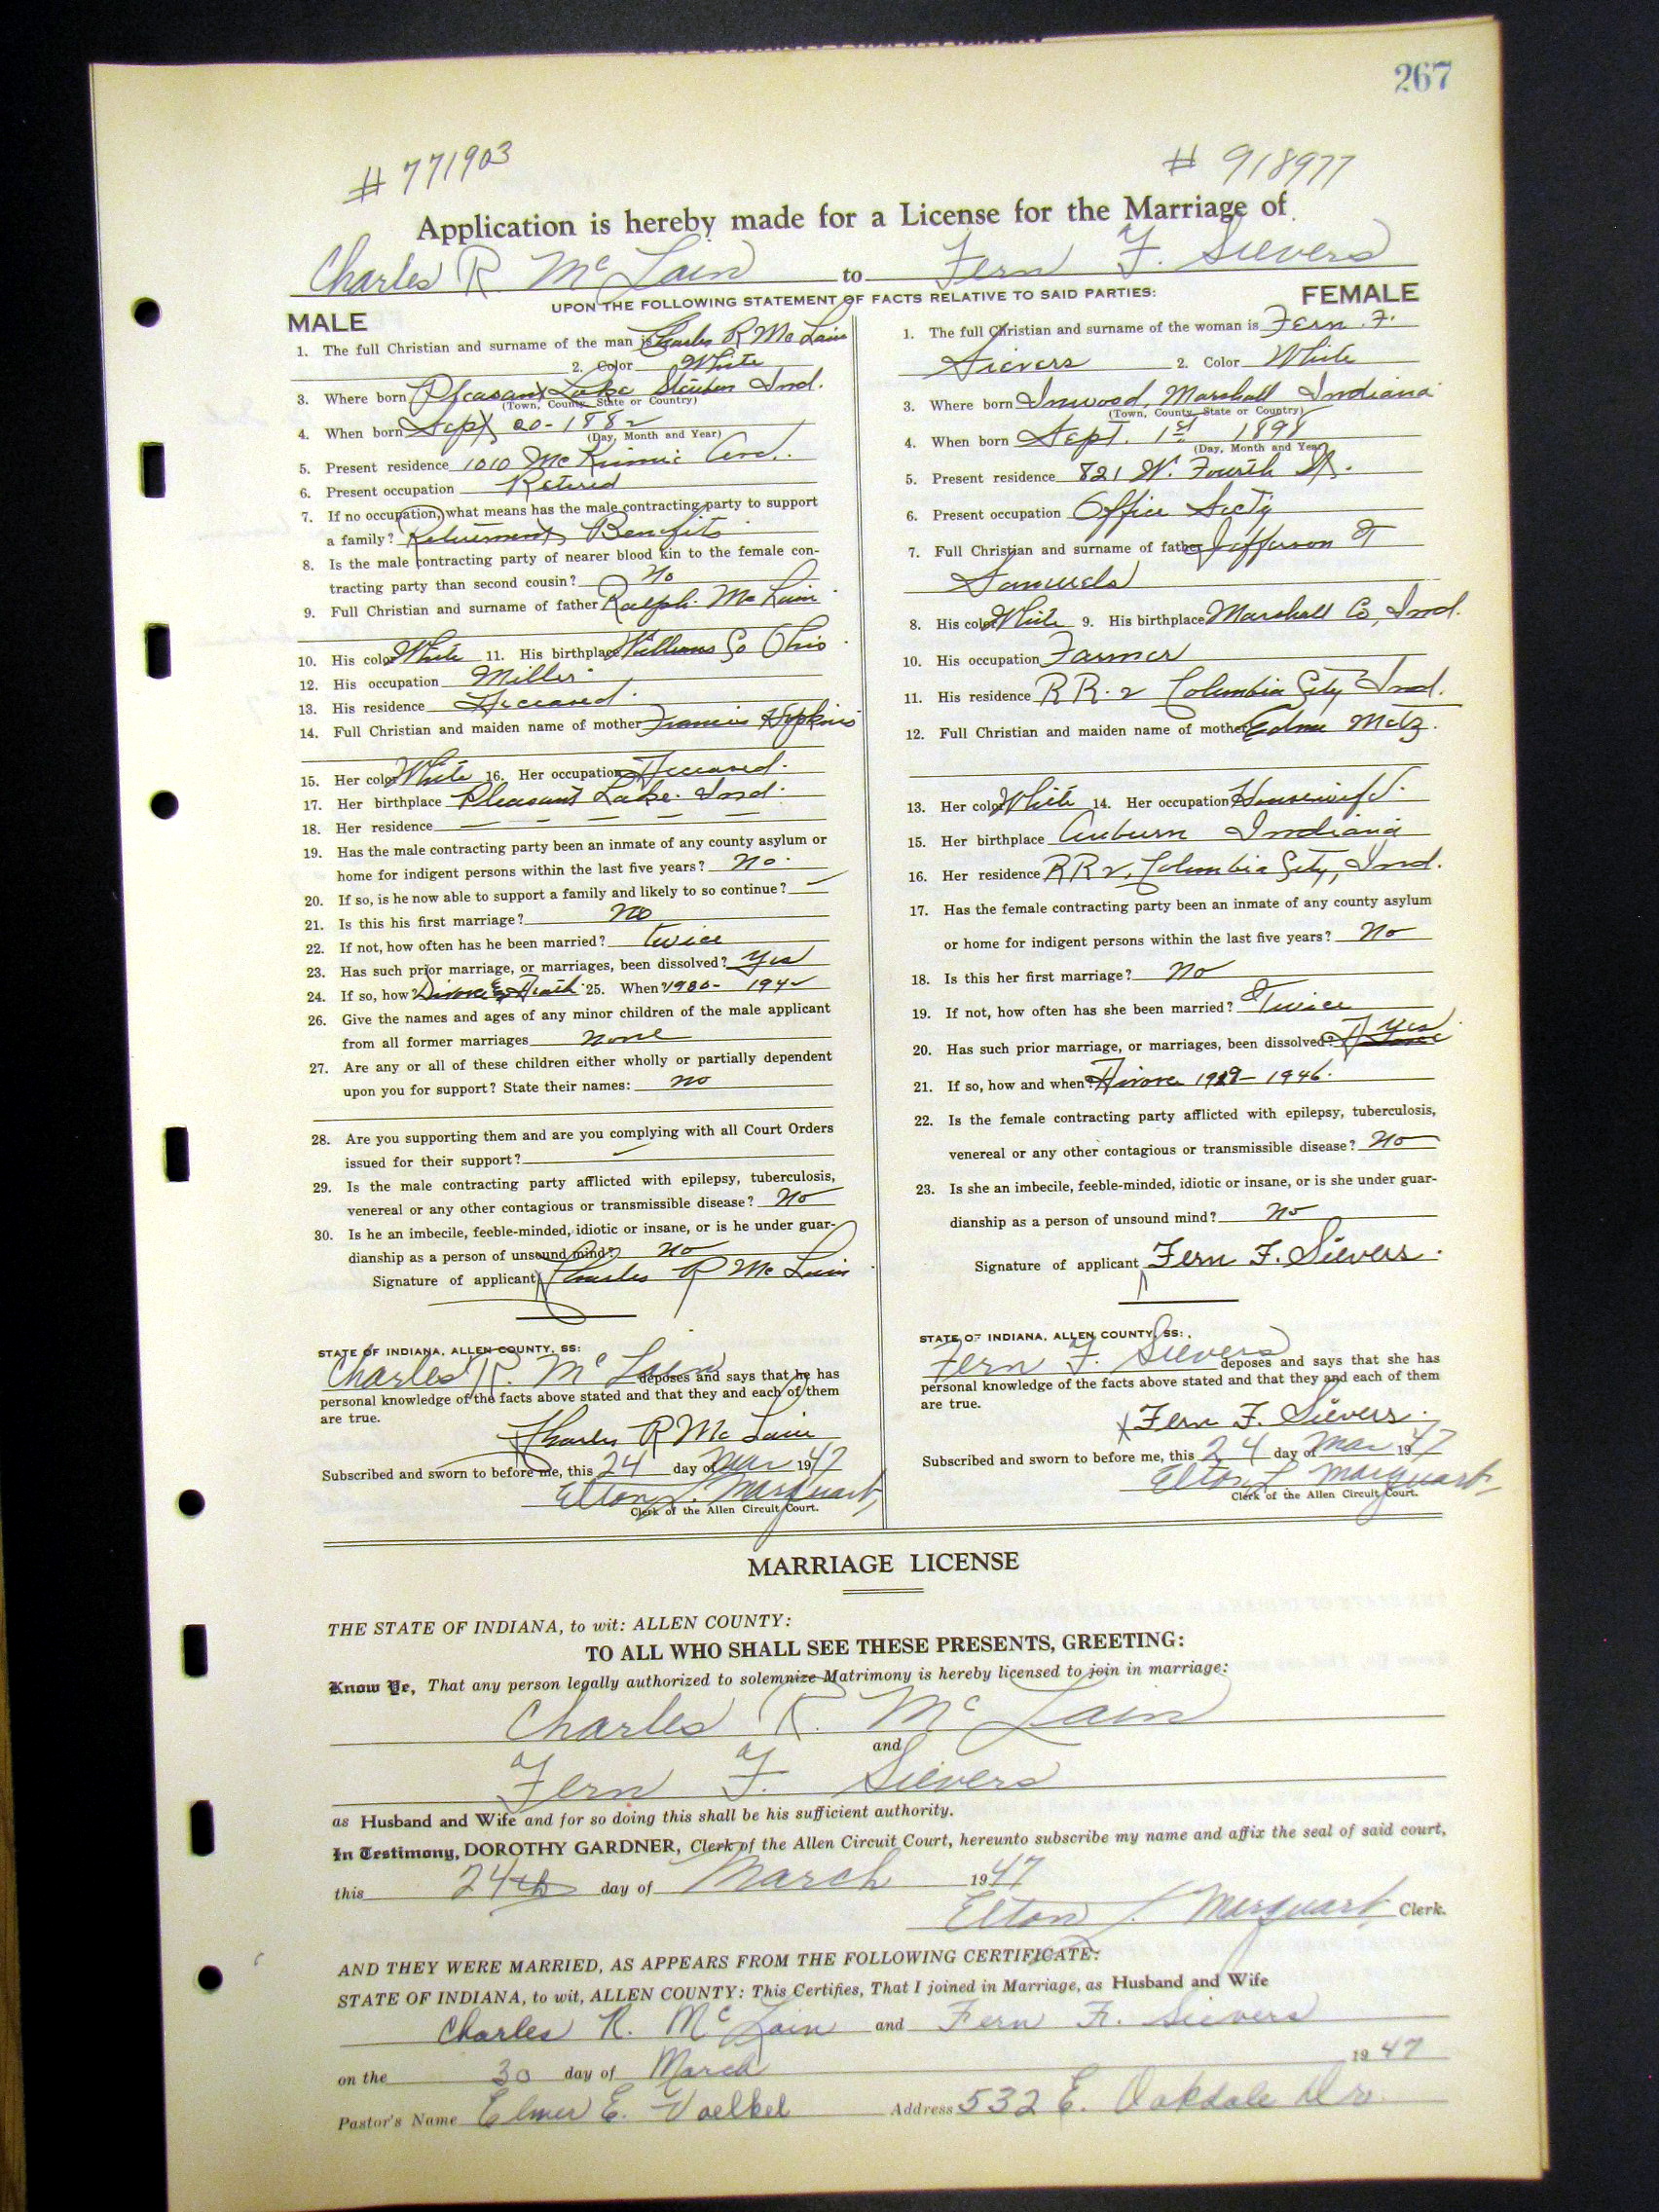 267
# 771903
# 918977
Application is hereby made for a License for the Marriage of
Charles R Mc Lain to Fern F. Sievers
UPON THE FOLLOWING STATEMENT OF FACTS RELATIVE TO SAID PARTIES:
MALE
1. The full Christian and surname of the man is Charles R Mc Lain
2. Color White
3. Where born Pleasant Lake Steuben Ind.
(Town, County, State or Country)
4. When born Sept 20-1882
(Day, Month and Year)
5. Present residence 1010 McKinnie Ave.
6. Present occupation Retired
7. If no occupation, what means has the male contracting party to support
a family? Retirement Benefits
8. Is the male contracting party of nearer blood kin to the female con-
tracting party than second cousin? No
9. Full Christian and surname of father Ralph Mc Lain
10. His color White 11. His birthplace Williams Co Ohio
12. His occupation Miller
13. His residence Deceased
14. Full Christian and maiden name of mother Francis Hopkins
15. Her color White 16. Her occupation Deceased.
17. Her birthplace Pleasant Lake. Ind.
18. Her residence — — — — —
19. Has the male contracting party been an inmate of any county asylum or
home for indigent persons within the last five years? No.
20. If so, is he now able to support a family and likely to so continue? —
21. Is this his first marriage? No
22. If not, how often has he been married? Twice
23. Has such prior marriage, or marriages, been dissolved? Yes
24. If so, how? Divorce & Death 25. When? 1930- 1942
26. Give the names and ages of any minor children of the male applicant
from all former marriages none
27. Are any or all of these children either wholly or partially dependent
upon you for support? State their names: no
28. Are you supporting them and are you complying with all Court Orders
issued for their support? —
29. Is the male contracting party afflicted with epilepsy, tuberculosis,
venereal or any other contagious or transmissible disease? No
30. Is he an imbecile, feeble-minded, idiotic or insane, or is he under guar-
dianship as a person of unsound mind? no
Signature of applicant Charles R Mc Lain
STATE OF INDIANA, ALLEN COUNTY, SS:
Charles R. Mc Lain deposes and says that he has
personal knowledge of the facts above stated and that they and each of them
are true.
Charles R Mc Lain
Subscribed and sworn to before me, this 24 day of Mar 1947
Elton L. Marquart,
Clerk of the Allen Circuit Court.
FEMALE
1. The full Christian and surname of the woman is Fern F.
Sievers 2. Color White
3. Where born Inwood, Marshall Indiana
(Town, County, State or Country)
4. When born Sept. 1st 1898
(Day, Month and Year)
5. Present residence 821 W. Fourth St.
6. Present occupation Office Sect'y
7. Full Christian and surname of father Jefferson T
Samuels
8. His color White 9. His birthplace Marshall Co, Ind.
10. His occupation Farmer
11. His residence RR. 2 Columbia City Ind.
12. Full Christian and maiden name of mother Edna Metz.
13. Her color White 14. Her occupation Housewife.
15. Her birthplace Auburn Indiana
16. Her residence RR 2, Columbia City, Ind.
17. Has the female contracting party been an inmate of any county asylum
or home for indigent persons within the last five years? No
18. Is this her first marriage? No
19. If not, how often has she been married? Twice
20. Has such prior marriage, or marriages, been dissolved? Yes
21. If so, how and when? Divorce 1929-1946.
22. Is the female contracting party afflicted with epilepsy, tuberculosis,
venereal or any other contagious or transmissible disease? No
23. Is she an imbecile, feeble-minded, idiotic or insane, or is she under guar-
dianship as a person of unsound mind? no
Signature of applicant Fern F. Sievers.
STATE OF INDIANA, ALLEN COUNTY, SS:
Fern F. Sievers deposes and says that she has
personal knowledge of the facts above stated and that they and each of them
are true.
x Fern F. Sievers.
Subscribed and sworn to before me, this 24 day of Mar 1947
Elton L Marquart
Clerk of the Allen Circuit Court.
MARRIAGE LICENSE
THE STATE OF INDIANA, to wit: ALLEN COUNTY:
TO ALL WHO SHALL SEE THESE PRESENTS, GREETING:
Know Ye, That any person legally authorized to solemnize Matrimony is hereby licensed to join in marriage:
Charles R. Mc Lain
and
Fern F. Sievers
as Husband and Wife and for so doing this shall be his sufficient authority.
In Testimony, DOROTHY GARDNER, Clerk of the Allen Circuit Court, hereunto subscribe my name and affix the seal of said court,
this 24th day of March 1947
Elton L. Marquart, Clerk.
AND THEY WERE MARRIED, AS APPEARS FROM THE FOLLOWING CERTIFICATE:
STATE OF INDIANA, to wit, ALLEN COUNTY: This Certifies, That I joined in Marriage, as Husband and Wife
Charles R. Mc Lain and Fern F. Sievers
on the 30 day of March 1947
Pastor's Name Elmer E. Voelkel Address 532 E. Oakdale Dr.